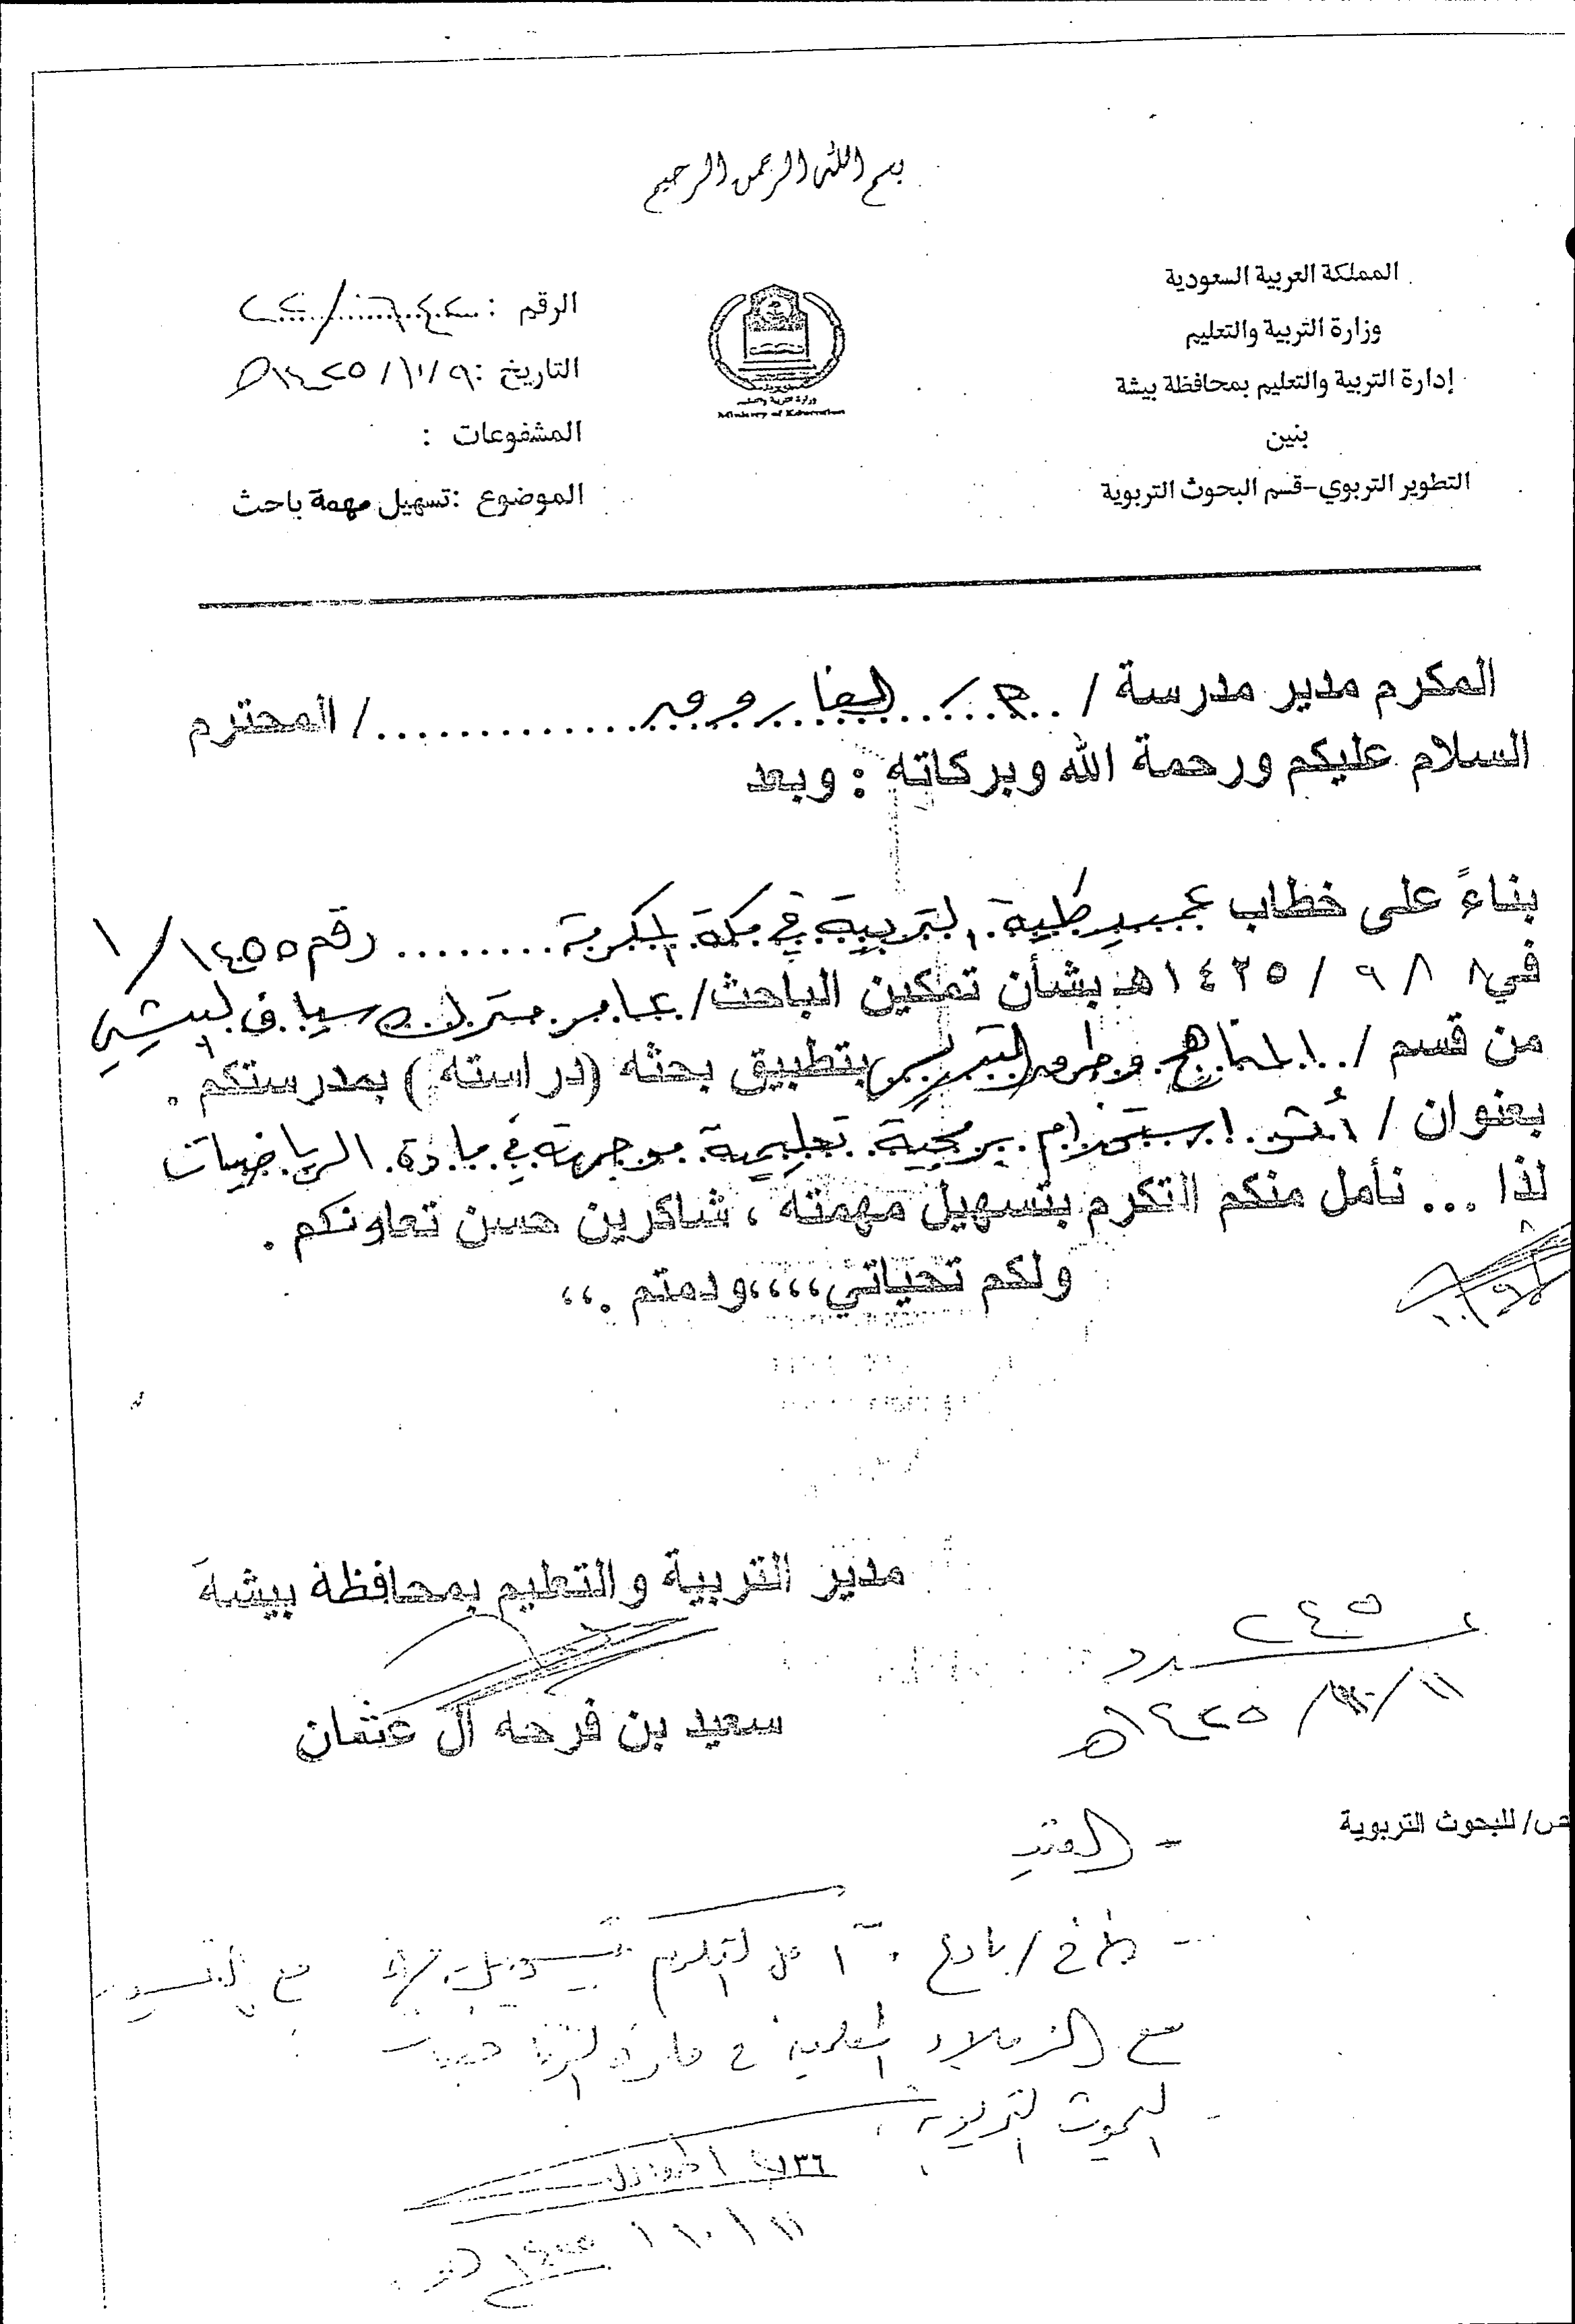 بسم الله الرحمن الرحيم
المملكة العربية السعودية
وزارة التربية والتعليم
إدارة التربية والتعليم بمحافظة بيشة
بنين
التطوير التربوي-قسم البحوث التربوية
وزارة التربية والتعليم
Ministry of Education
الرقم :
التاريخ : ٩/ ١٠/ ١٤٢٥هـ
المشفوعات :
الموضوع :تسهيل مهمة باحث
المكرم مدير مدرسة / الفاروق / المحترم
السلام عليكم ورحمة الله وبركاته : وبعد
بناءً على خطاب عميد كلية التربية في مكة المكرمة رقم ١٤٥٥/ ١
في ٨/ ٩/ ١٤٢٥هـ بشأن تمكين الباحث/ عامر مترك سياف البيشي
من قسم / المناهج وطرق التدريس بتطبيق بحثه (دراسته ) بمدرستكم .
بعنوان / أثر استخدام برمجية تعليمية موجهة في مادة الرياضيات
لذا ... نأمل منكم التكرم بتسهيل مهمته ، شاكرين حسن تعاونكم .
ولكم تحياتي،،،،ودمتم .،،
مدير التربية والتعليم بمحافظة بيشة
سعيد بن فرحه آل عثمان
٢٤٥
١١/ ١٠/ ١٤٢٥هـ
ص/ للبحوث التربوية
مع الزملاء المعلمين في مادة الرياضيات
- البحوث التربوية
١١/ ١٠/ ١٤٢٥هـ